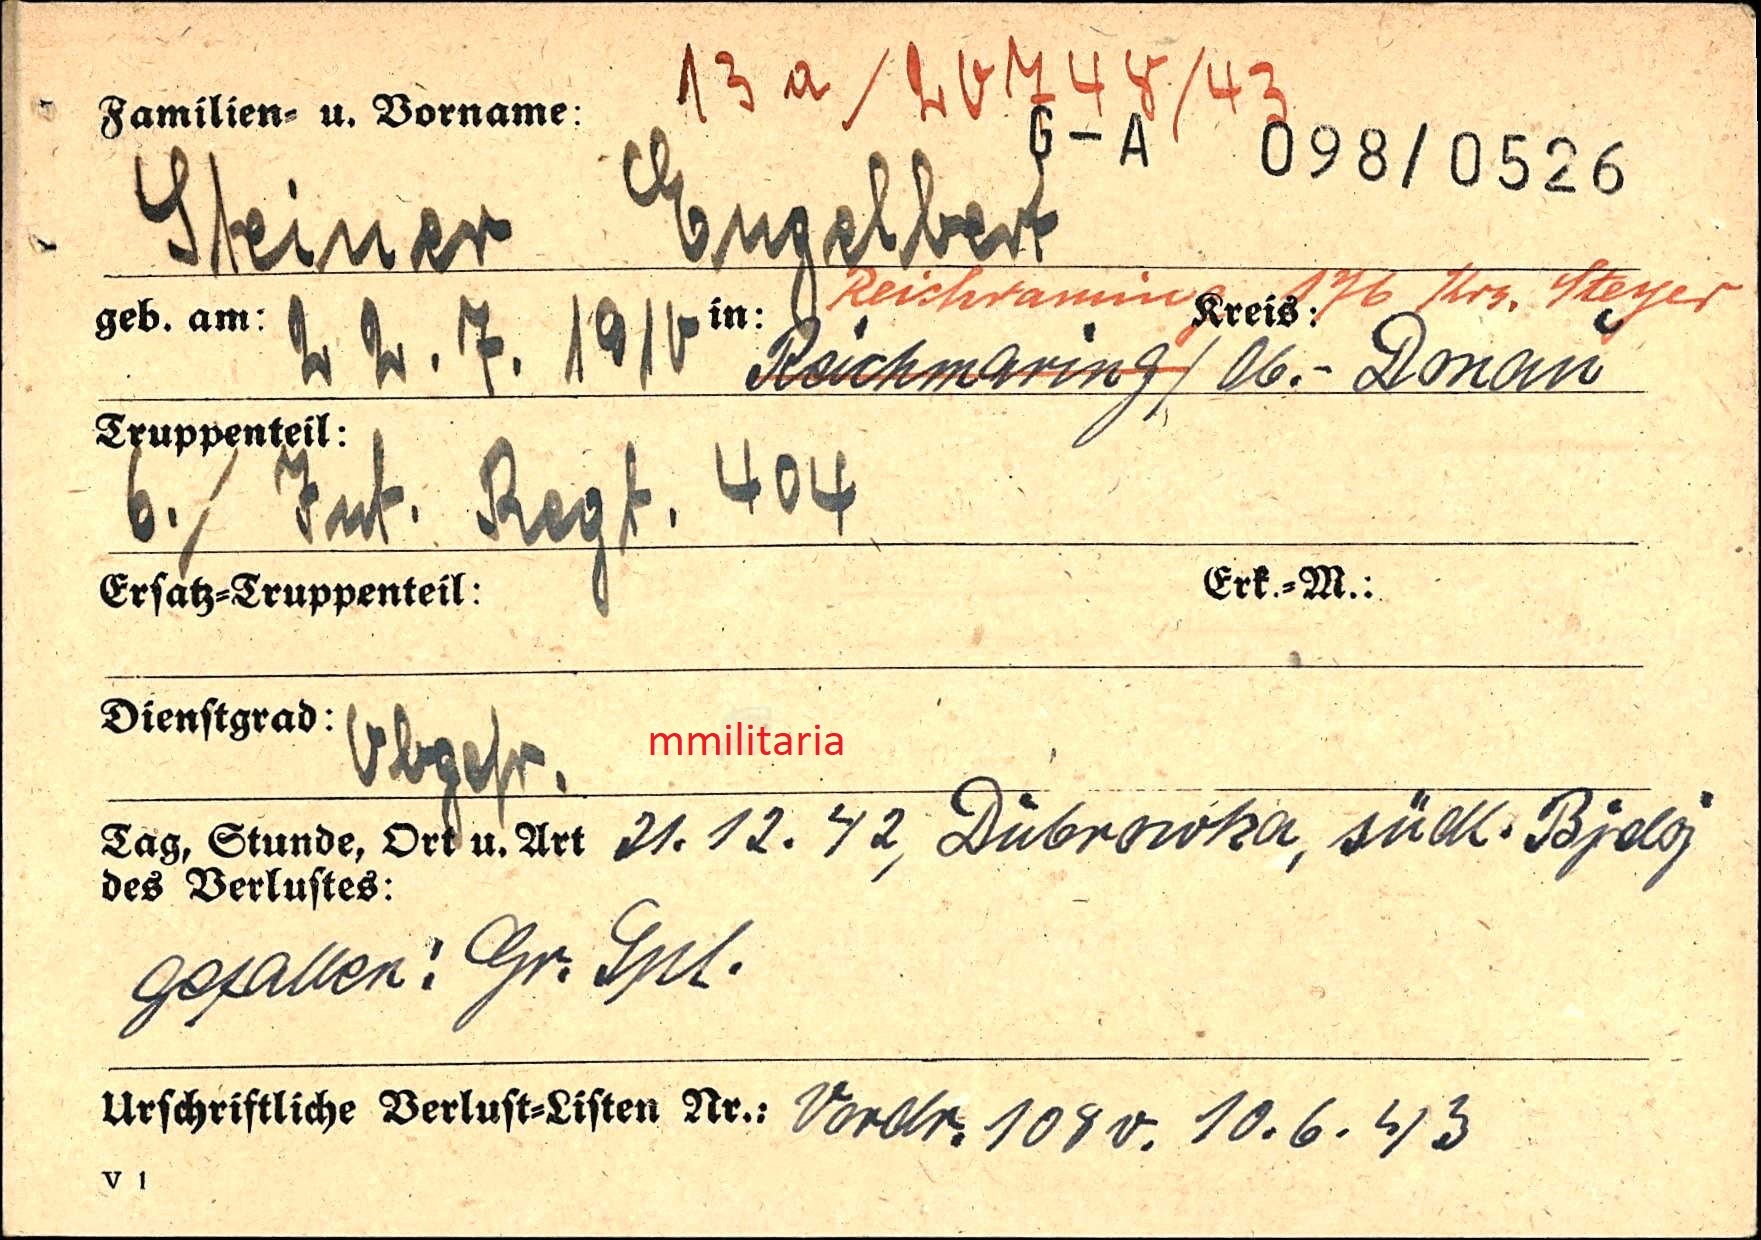 13 a / 20748/43
Familien- u. Vorname:
G-A 098/0526
Steiner Engelbert
Reichraming 176 Krs. Steyer
geb. am: 22.7.1910 in: Kreis:
Reichmaring / Ob.- Donau
Truppenteil:
6./ Inf. Regt. 404
Ersatz-Truppenteil: Erk.-M.:
Dienstgrad: Obgefr.
mmilitaria
Tag, Stunde, Ort u. Art 21.12.42, Dubrowka, südl. Bjeloj
des Verlustes:
gefallen: Gr. Spl.
Urschriftliche Verlust-Listen Nr.: Vordr. 108 v. 10.6.43
V 1